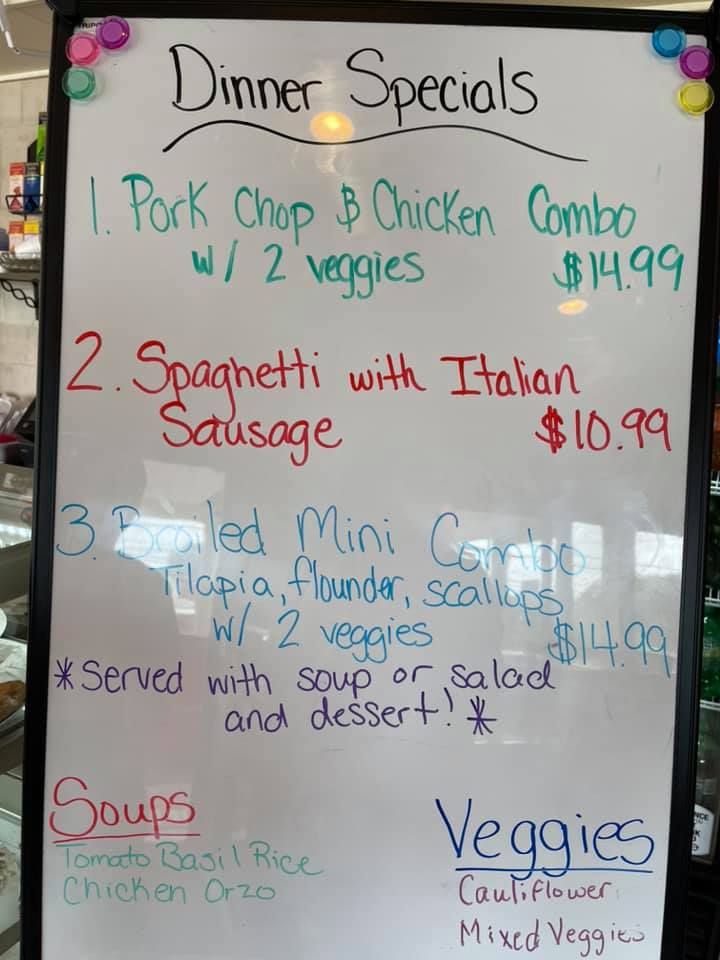 Dinner Specials
1. Pork Chop & Chicken Combo
w/ 2 veggies $14.99
2. Spaghetti with Italian
Sausage $10.99
3. Broiled Mini Combo
Tilapia, flounder, scallops
w/ 2 veggies $14.99
*Served with soup or salad
and dessert! *
Soups
Tomato Basil Rice
Chicken Orzo
Veggies
Cauliflower
Mixed Veggies